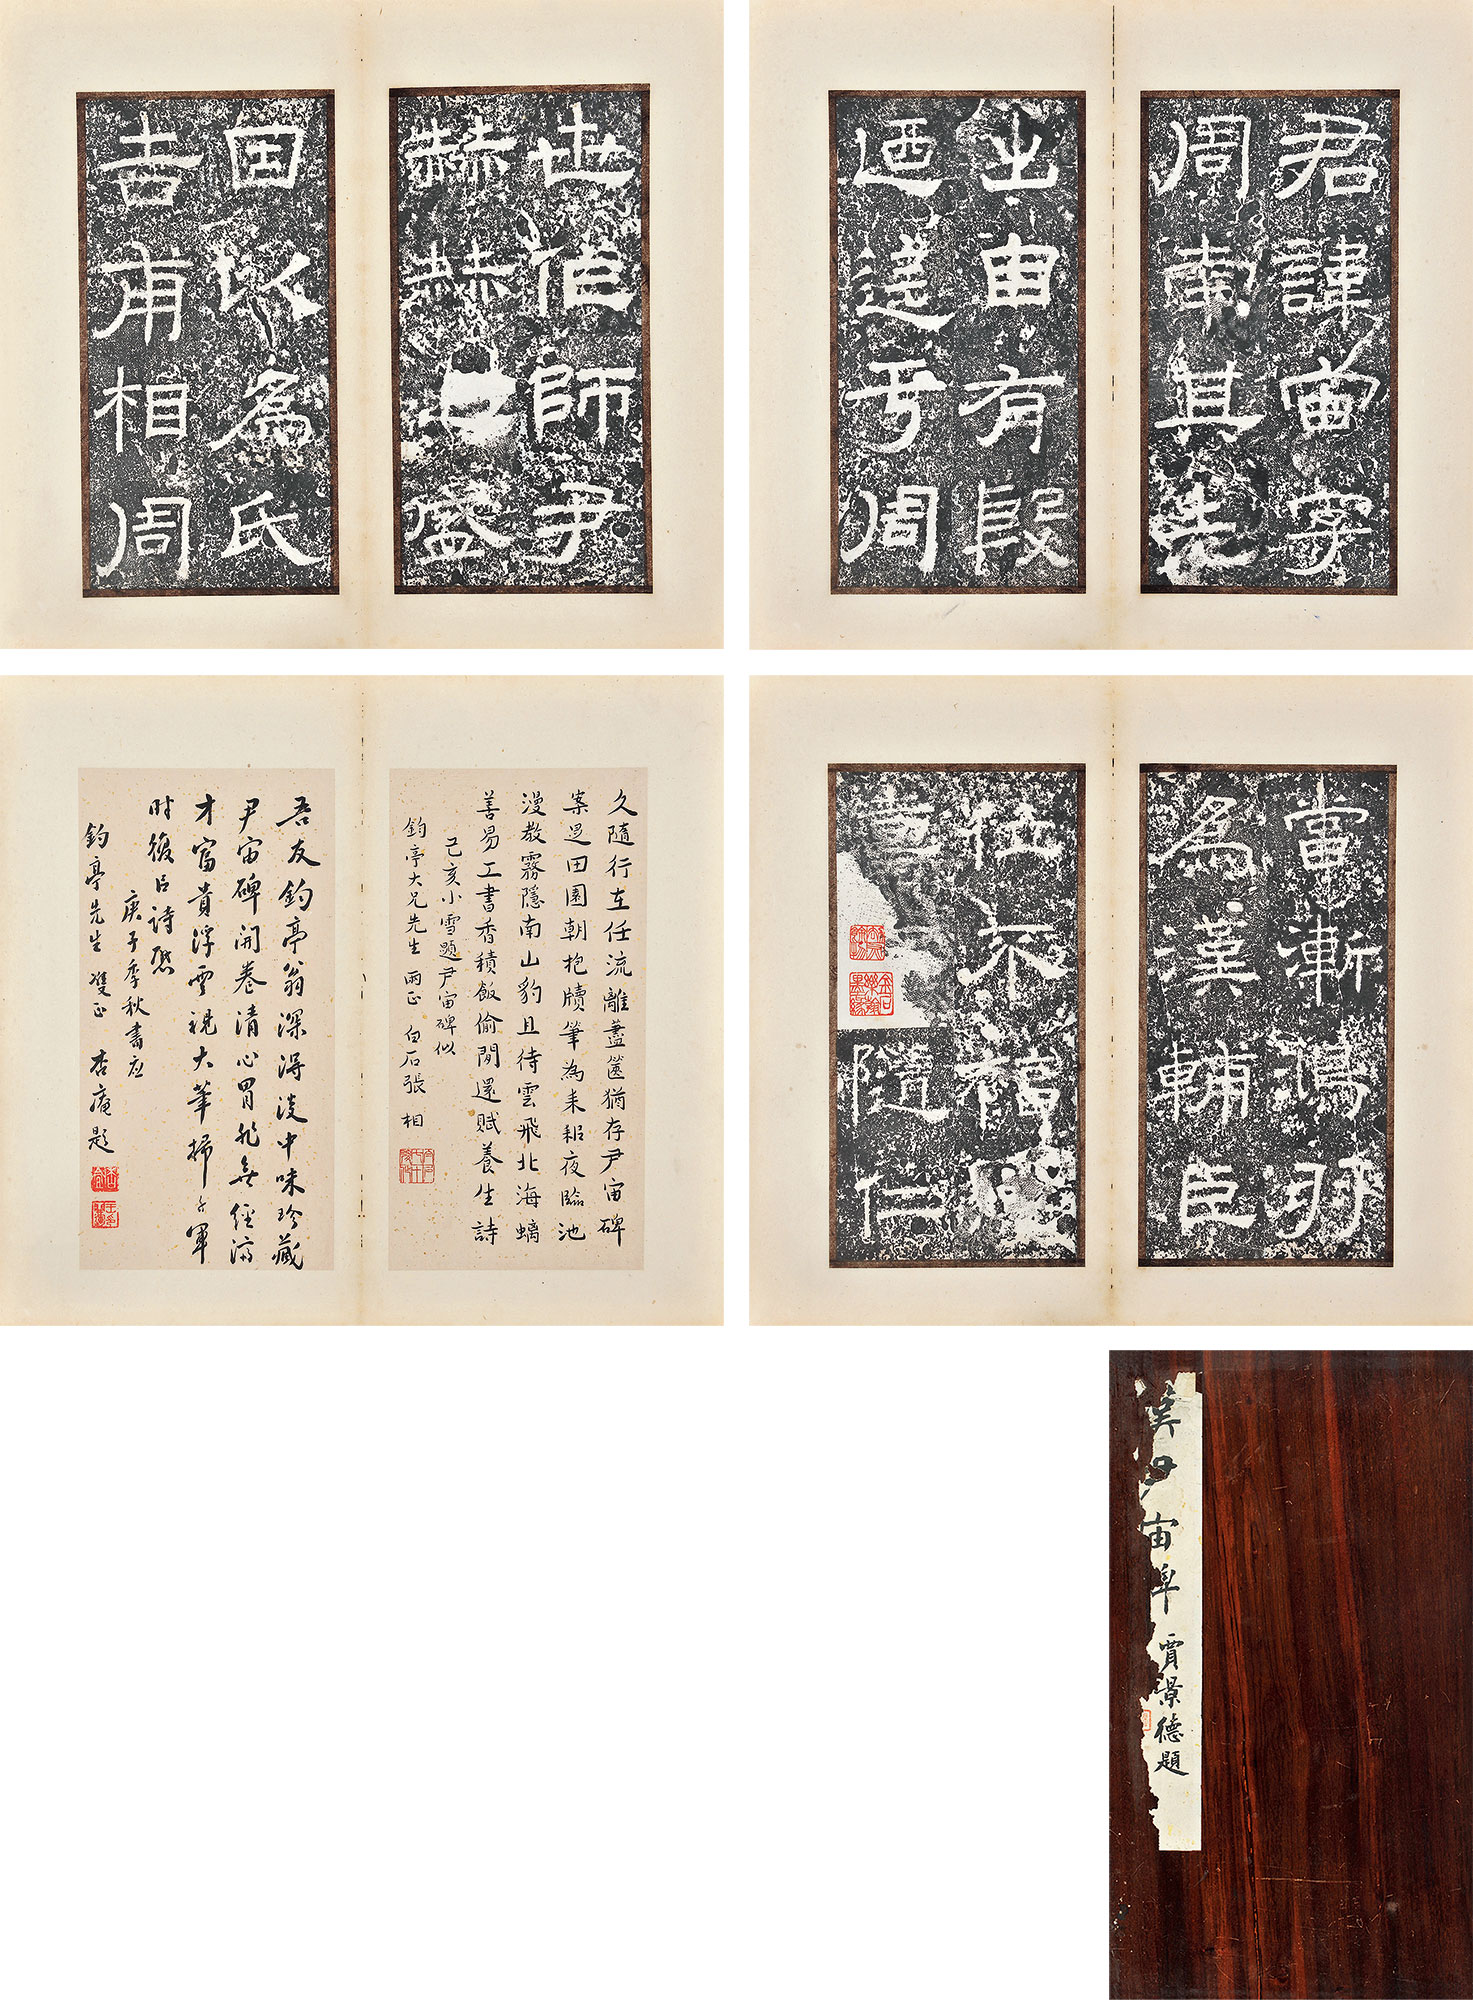 君諱宙字
周南其先
出自有殷
迺迄于周
世作師尹
赫赫之盛
因以為氏
吉甫相周
當漸鴻羽
為漢輔臣
位不福德
壽
隨仁
久隨行在任流離蓋篋猶存尹宙碑
案是田園朝抱牘筆為耒耜夜臨池
漫教霧隱南山豹且待雲飛北海螭
善易工書香積飯偷閒還賦養生詩
己亥小雪題尹宙碑似
鈞亭大兄先生兩正 白石張相
吾友鈞亭翁深得淡中味珍藏
尹宙碑開卷清心胃非無經濟
才富貴浮雲視大筆掃千軍
時復詩
庚子季秋書應
鈞亭先生雙正 杏庵題
漢尹宙碑 賈景德題